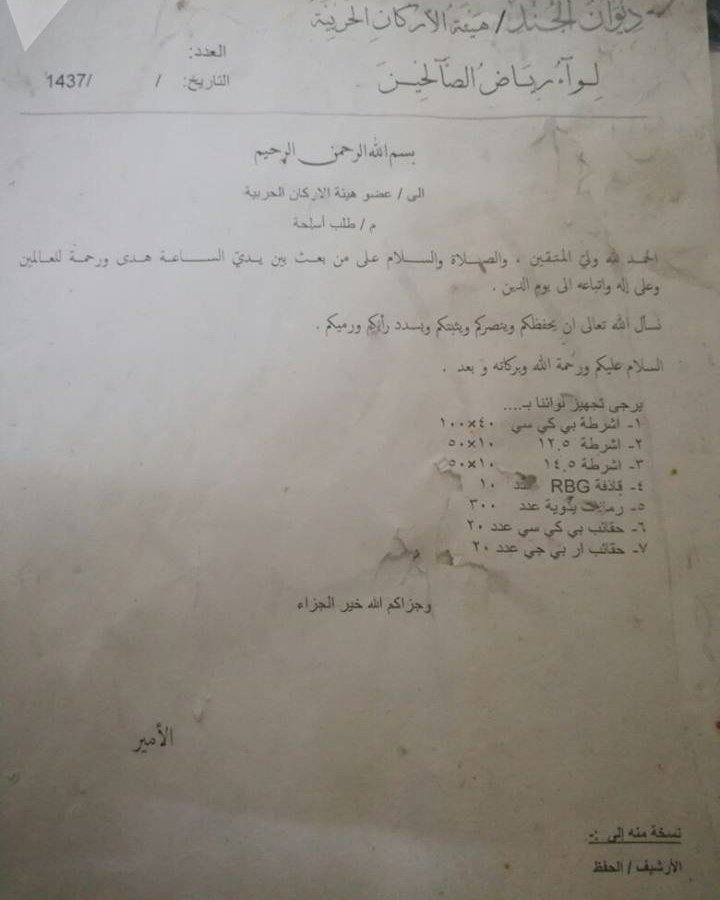 ديوان الجند / هيئة الأركان الحربية
العدد:
لواء رياض الصالحين
التاريخ: / /1437
بسم الله الرحمن الرحيم
الى / عضو هيئة الاركان الحربية
م / طلب أسلحة
الحمد لله ولي المتقين ، والصلاة والسلام على من بعث بين يدي الساعة هدى ورحمة للعالمين
وعلى إله واتباعه الى يوم الدين .
نسأل الله تعالى ان يحفظكم وينصركم ويثبتكم ويسدد رأيكم ورميكم .
السلام عليكم ورحمة الله وبركاته و بعد .
يرجى تجهيز لوائنا بـ....
١- اشرطة بي كي سي ٤٠×١٠٠
٢- اشرطة ١٢.٥ ١٠×٥٠
٣- اشرطة ١٤.٥ ١٠×٥٠
٤- قاذفة RBG عدد ١٠
٥- رمانات يدوية عدد ٣٠٠
٦- حقائب بي كي سي عدد ٢٠
٧- حقائب ار بي جي عدد ٢٠
وجزاكم الله خير الجزاء
الأمير
نسخة منه إلى :-
الأرشيف / الحفظ